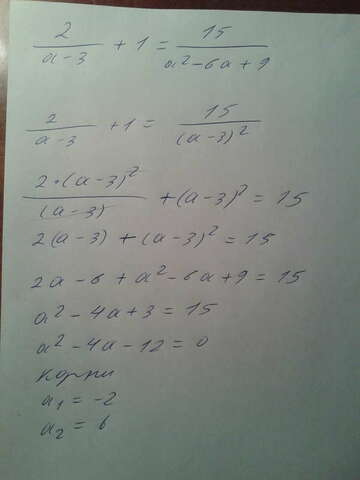 2/(a-3) + 1 = 15/(a²-6a+9)
2/(a-3) + 1 = 15/(a-3)²
2·(a-3)²/(a-3) + (a-3)² = 15
2(a-3) + (a-3)² = 15
2a-6+a²-6a+9 = 15
a²-4a+3 = 15
a²-4a-12 = 0
корни
a₁ = -2
a₂ = 6